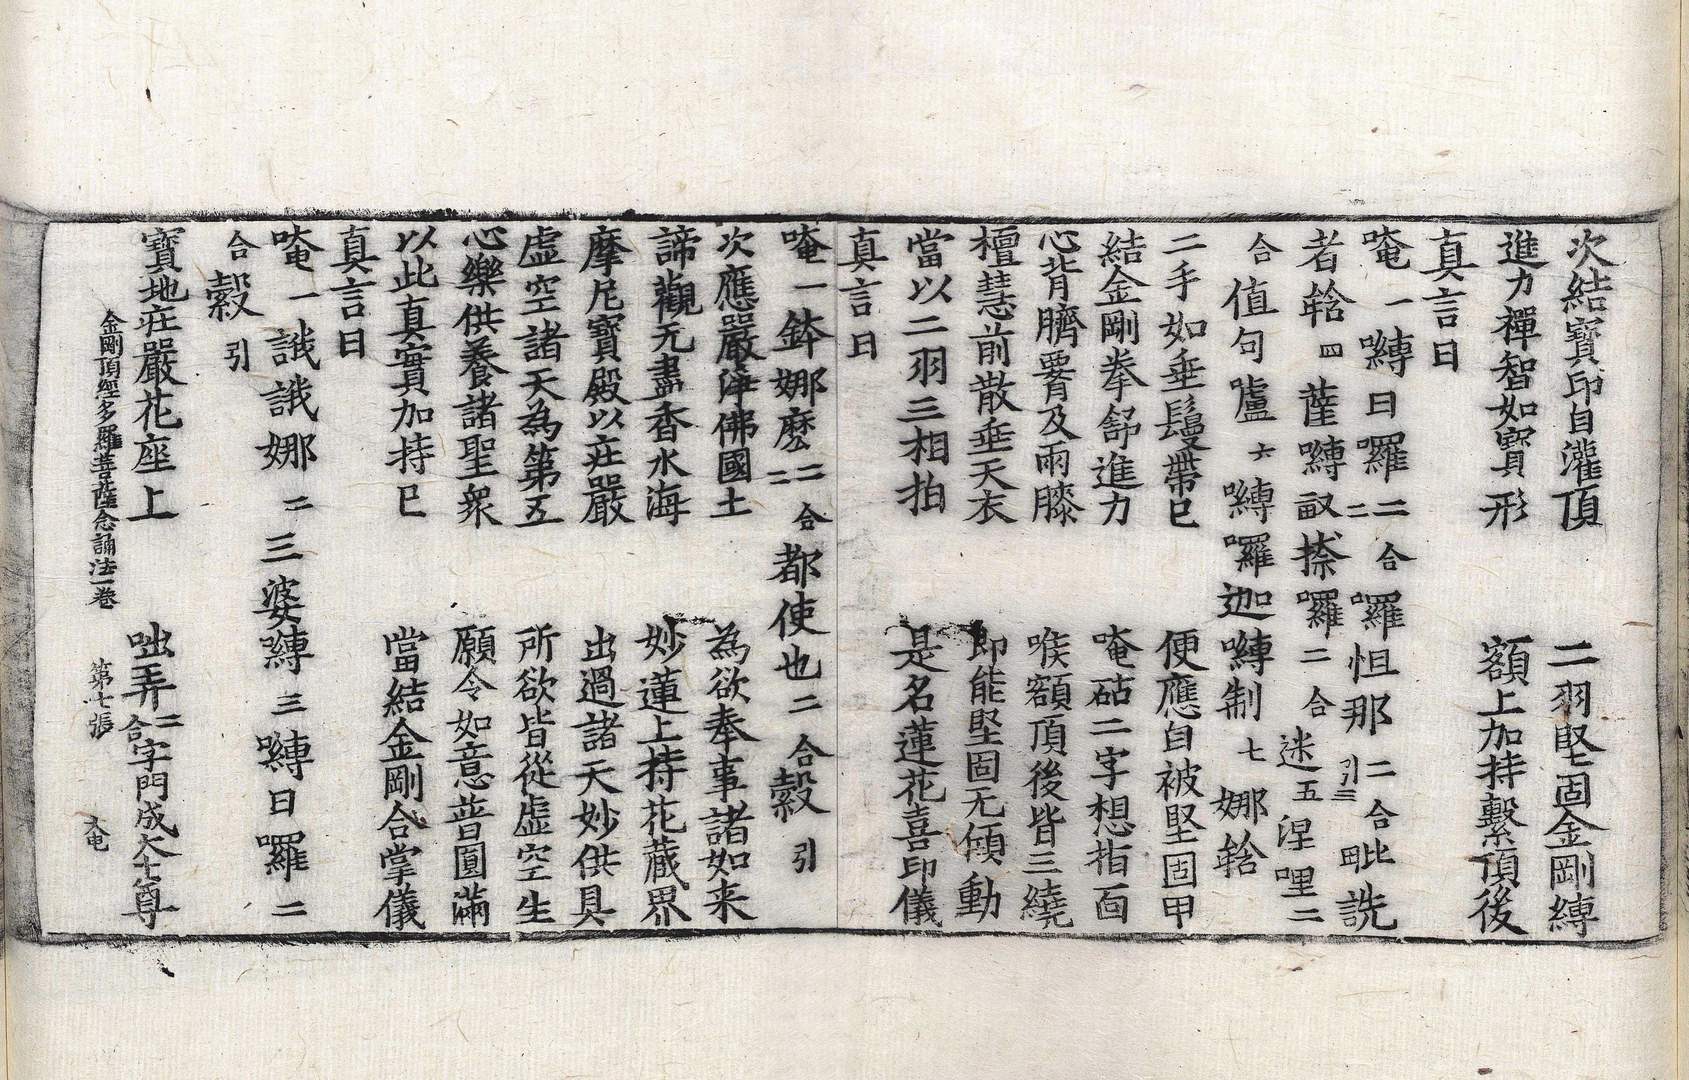 次結寶印自灌頂　二羽堅固金剛縛
進力禪智如寶形　額上加持繫頂後
真言曰
唵一嚩日囉二合囉怛那二合引三毗詵
者𤚥四薩嚩畝捺囉二合迷五涅哩二
合值句嚧六嚩囉迦嚩制七娜𤚥
二手如垂鬘帶已　便應自被堅固甲
結金剛拳舒進力　唵砧二字想指面
心背臍胷及兩膝　喉額頂後皆三繞
檀慧前散垂天衣　即能堅固无傾動
當以二羽三相拍　是名蓮花喜印儀
真言曰
唵一鉢娜麽二合都使也二合縠引
次應嚴淨佛國土　為欲奉事諸如来
諦觀无盡香水海　妙蓮上持花藏界
摩尼寶殿以莊嚴　出過諸天妙供具
虛空諸天為第五　所欲皆從虛空生
心樂供養諸聖衆　願令如意普圓滿
以此真實加持已　當結金剛合掌儀
真言曰
唵一誐誐娜二三婆嚩三嚩日囉二
合縠引
寶地莊嚴花座上　咄弄二合字門成大士尊
金剛頂經多羅菩薩念誦法一卷　第七張